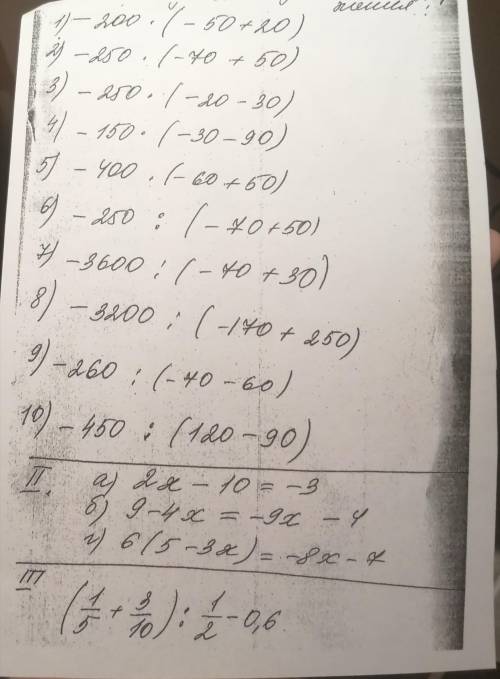 жения:
1) -200 · (-50+20)
2) -250 · (-70 + 50)
3) -250 · (-20-30)
4) -150 · (-30-90)
5) -400 · (-60+50)
6) -250 : (-70+50)
7) -3600 : (-70+30)
8) -3200 : (-170+250)
9) -260 : (-70-60)
10) -450 : (120-90)
II. а) 2х - 10 = -3
б) 9-4х = -9х - 4
г) 6(5-3х) = -8х-7
III
(1/5 + 3/10) : 1/2 - 0,6